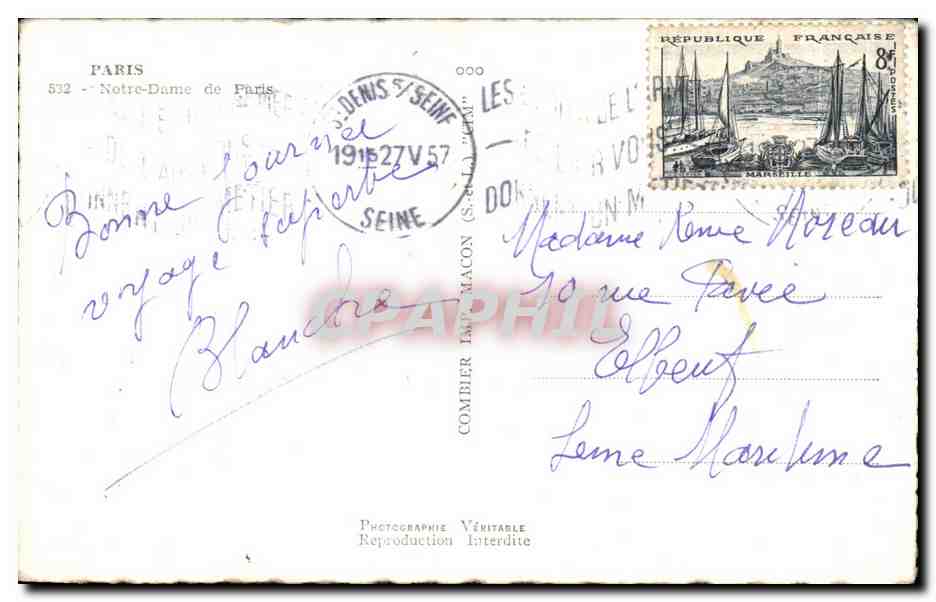 PARIS
532 - Notre-Dame de Paris
ST DENIS S/ SEINE
19 15 27 V 57
SEINE
ooo
LES
DE L'
VOUS
DON
RÉPUBLIQUE FRANÇAISE
8F
POSTES
MARSEILLE
Bonne journée
voyage superbe
Blandine
COMBIER IMP. MACON (S.-et-L.) "CIM"
CPAPHIL
Madame Renée Moreau
10 rue Pavée
Elbeuf
Seine Maritime
PHOTOGRAPHIE VÉRITABLE
Reproduction Interdite